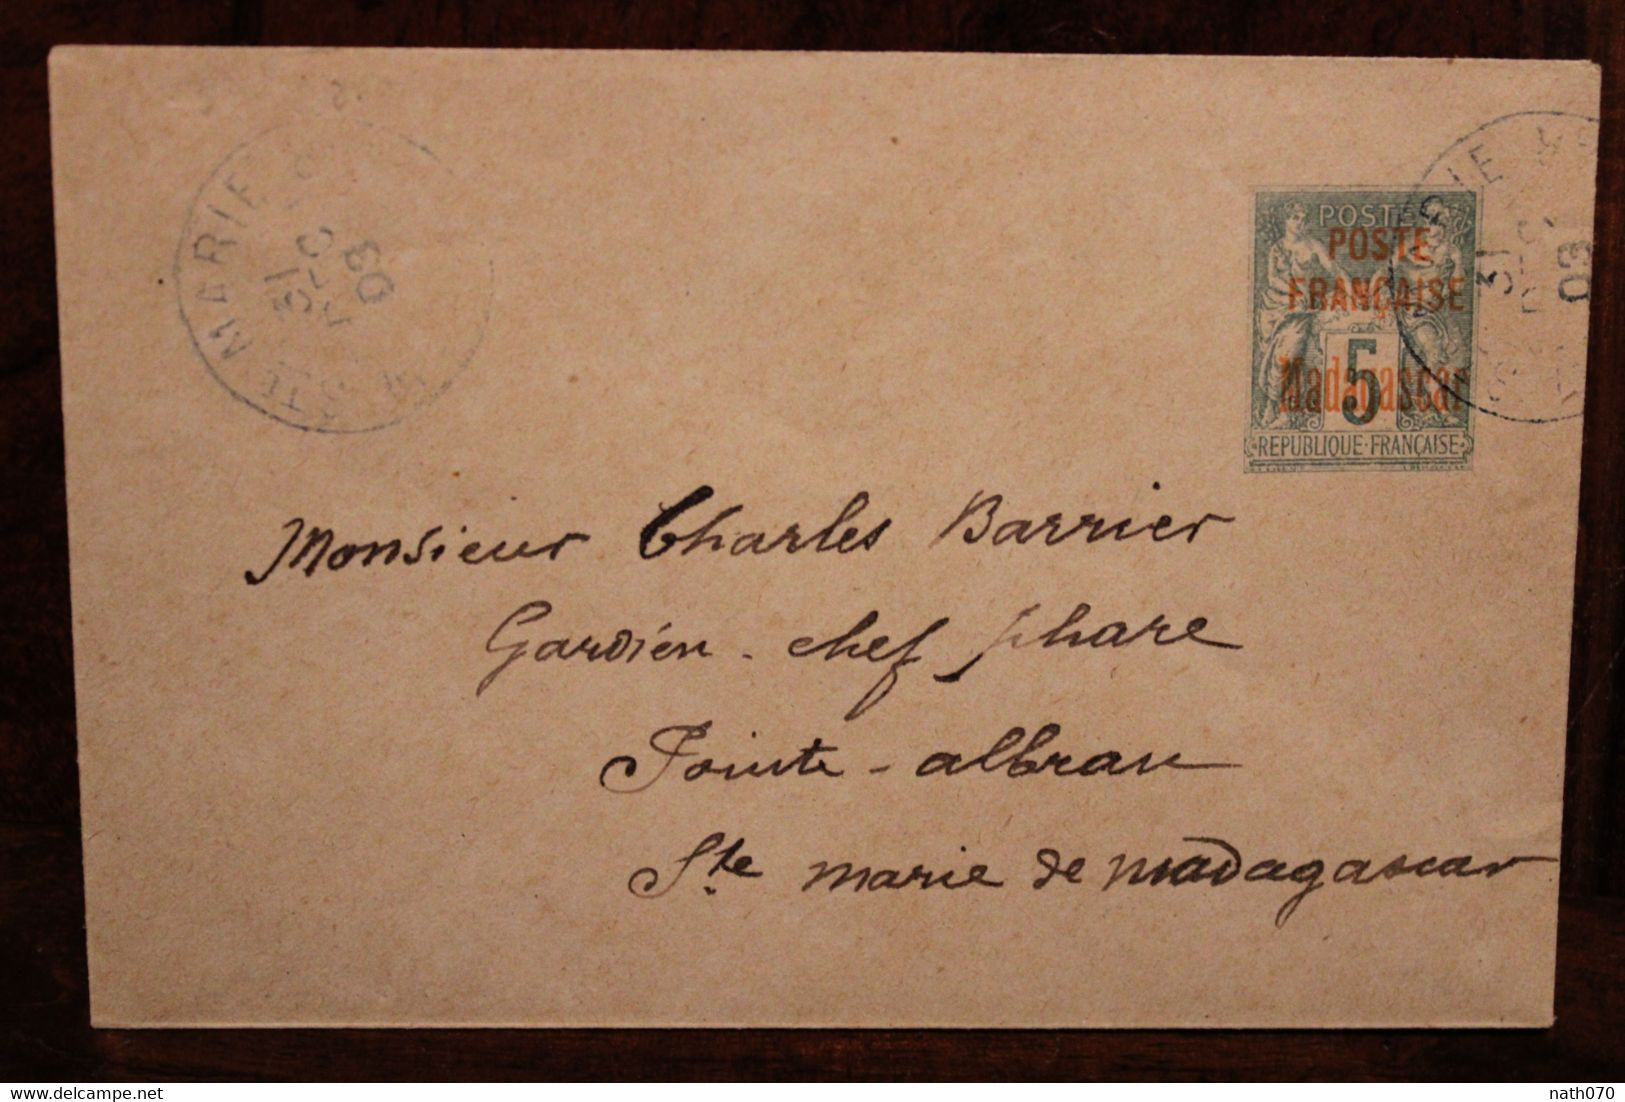 STE MARIE
31
03
POSTES
POSTE
FRANÇAISE
5
Madagascar
REPUBLIQUE·FRANÇAISE
MARIE
31
03
Monsieur Charles Barrier
Gardien - chef phare
Pointe - albran
Ste marie de madagascar
www.delcampe.net
nath070